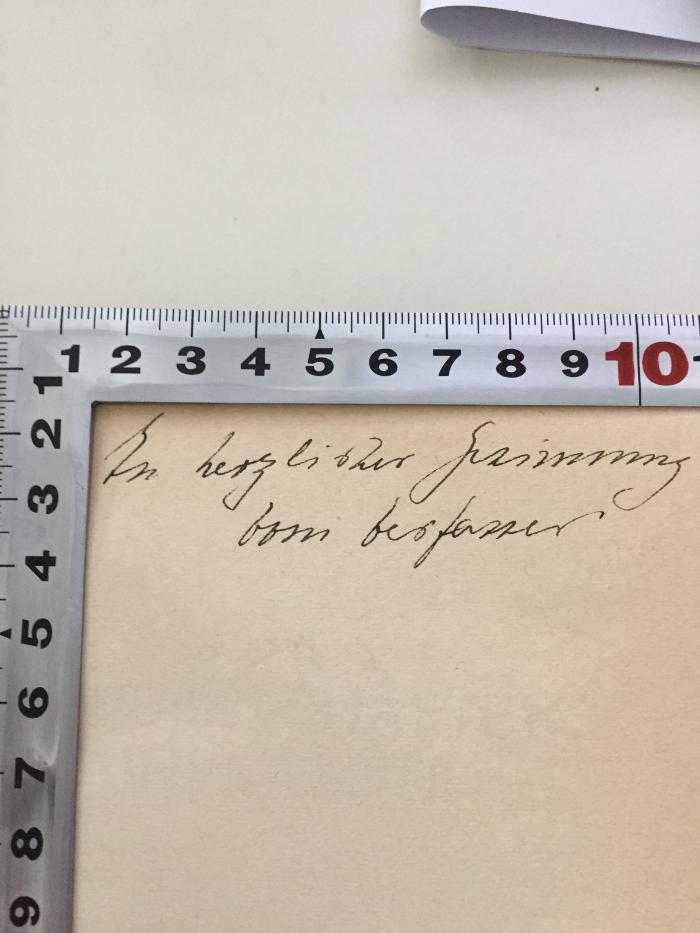 1 2 3 4 5 6 7 8 9 10
1
2
3
4
5
6
7
8
9
In herzlicher Gesinnung
vom Verfasser